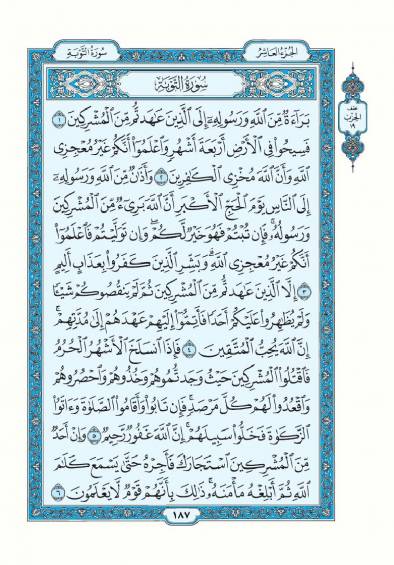 الجزء العاشر
سورة التوبة
سُورَةُ التَّوبَةِ
بَرَآءَةٌ مِّنَ ٱللَّهِ وَرَسُولِهِۦٓ إِلَى ٱلَّذِينَ عَٰهَدتُّم مِّنَ ٱلْمُشْرِكِينَ ١
فَسِيحُوا۟ فِى ٱلْأَرْضِ أَرْبَعَةَ أَشْهُرٍ وَٱعْلَمُوٓا۟ أَنَّكُمْ غَيْرُ مُعْجِزِى
ٱللَّهِ وَأَنَّ ٱللَّهَ مُخْزِى ٱلْكَٰفِرِينَ ٢ وَأَذَٰنٌ مِّنَ ٱللَّهِ وَرَسُولِهِۦٓ
إِلَى ٱلنَّاسِ يَوْمَ ٱلْحَجِّ ٱلْأَكْبَرِ أَنَّ ٱللَّهَ بَرِىٓءٌ مِّنَ ٱلْمُشْرِكِينَ
وَرَسُولُهُۥ فَإِن تُبْتُمْ فَهُوَ خَيْرٌ لَّكُمْ وَإِن تَوَلَّيْتُمْ فَٱعْلَمُوٓا۟
أَنَّكُمْ غَيْرُ مُعْجِزِى ٱللَّهِ وَبَشِّرِ ٱلَّذِينَ كَفَرُوا۟ بِعَذَابٍ أَلِيمٍ
٣ إِلَّا ٱلَّذِينَ عَٰهَدتُّم مِّنَ ٱلْمُشْرِكِينَ ثُمَّ لَمْ يَنقُصُوكُمْ شَيْـًٔا
وَلَمْ يُظَٰهِرُوا۟ عَلَيْكُمْ أَحَدًا فَأَتِمُّوٓا۟ إِلَيْهِمْ عَهْدَهُمْ إِلَىٰ مُدَّتِهِمْ
إِنَّ ٱللَّهَ يُحِبُّ ٱلْمُتَّقِينَ ٤ فَإِذَا ٱنسَلَخَ ٱلْأَشْهُرُ ٱلْحُرُمُ
فَٱقْتُلُوا۟ ٱلْمُشْرِكِينَ حَيْثُ وَجَدتُّمُوهُمْ وَخُذُوهُمْ وَٱحْصُرُوهُمْ
وَٱقْعُدُوا۟ لَهُمْ كُلَّ مَرْصَدٍ فَإِن تَابُوا۟ وَأَقَامُوا۟ ٱلصَّلَوٰةَ وَءَاتَوُا۟
ٱلزَّكَوٰةَ فَخَلُّوا۟ سَبِيلَهُمْ إِنَّ ٱللَّهَ غَفُورٌ رَّحِيمٌ ٥ وَإِنْ أَحَدٌ
مِّنَ ٱلْمُشْرِكِينَ ٱسْتَجَارَكَ فَأَجِرْهُ حَتَّىٰ يَسْمَعَ كَلَٰمَ
ٱللَّهِ ثُمَّ أَبْلِغْهُ مَأْمَنَهُۥ ذَٰلِكَ بِأَنَّهُمْ قَوْمٌ لَّا يَعْلَمُونَ ٦
١٨٧
نصف
الحزب
١٩